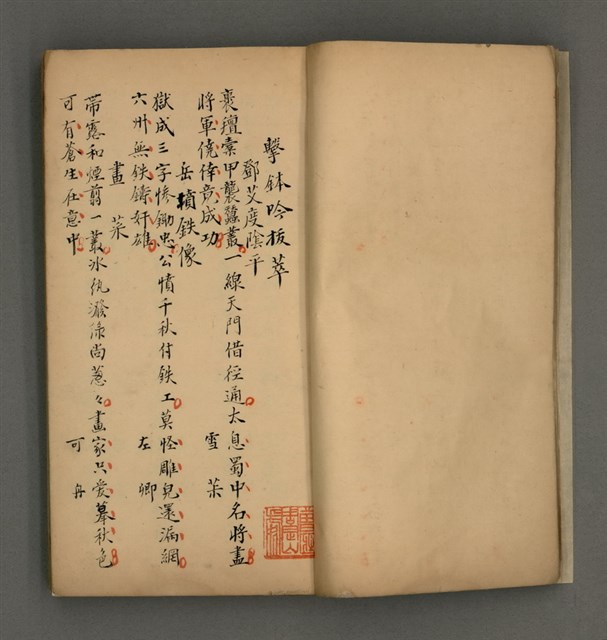 擊鉢吟拔萃
鄧艾度陰平
裹氊棗甲襲蠶叢一線天門借徑通太息蜀中名將盡
將軍僥倖竟成功 雪茱
岳墳鉄像
獄成三字慘鋤忠公憤千秋付鉄工莫怪雕兒還漏網
六州無鉄鑄奸雄 左卿
畫菜
帶露和煙剪一叢冰紈潑綠尚葱々畫家只愛摹秋色
可有蒼生在意中 可舟